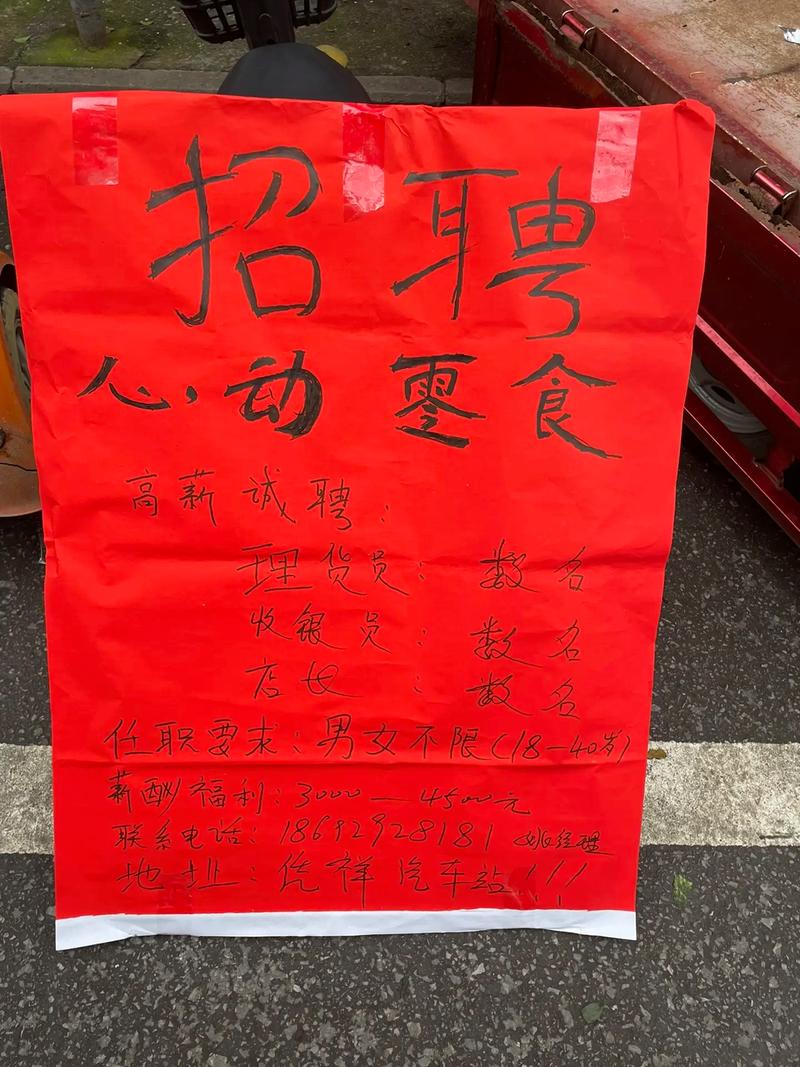 招聘
心动零食
高薪诚聘:
理货员: 数名
收银员: 数名
店长: 数名
任职要求: 男女不限(18-40岁)
薪酬福利: 3000—4500元
联系电话: 18692928181 姚经理
地址: 凭祥汽车站!!!